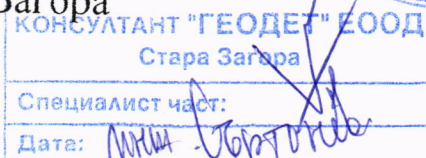 Загора
КОНСУЛТАНТ "ГЕОДЕТ" ЕООД
Стара Загора
Специалист част:
Дата:
инж.